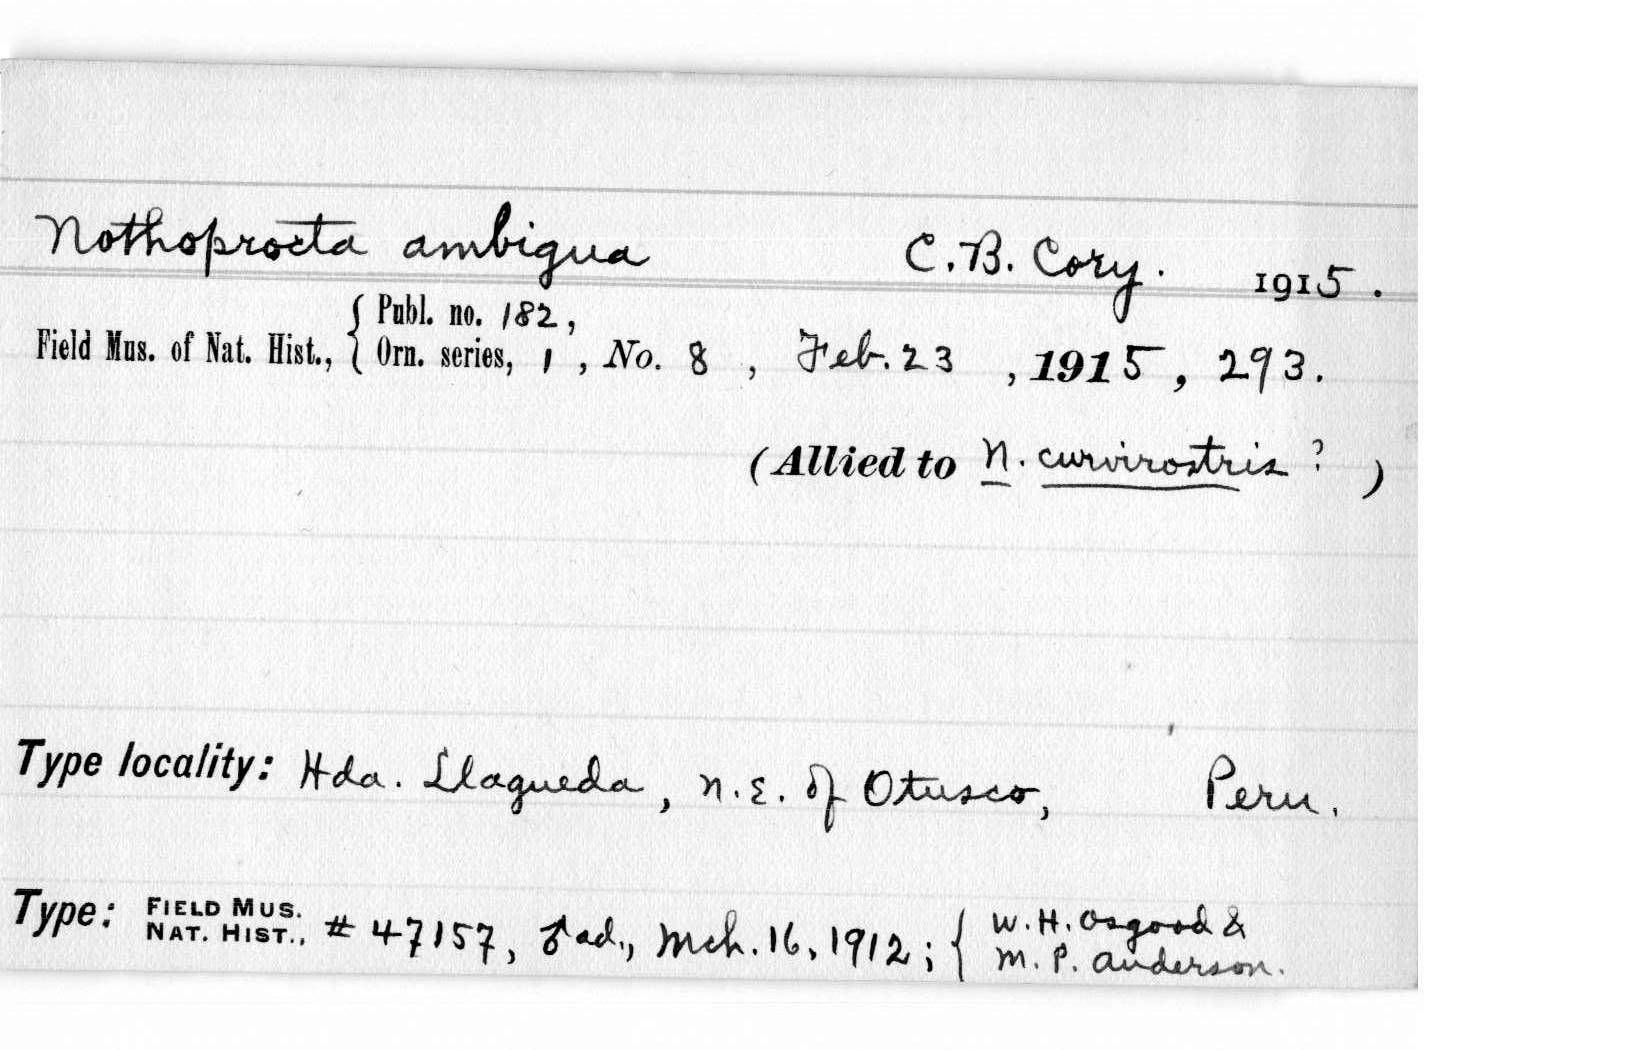 Nothoprocta ambigua C. B. Cory. 1915.
Field Mus. of Nat. Hist., { Publ. no. 182,
Orn. series, 1, No. 8, Feb. 23, 1915, 293.
(Allied to N. curvirostris ? )
Type locality: Hda. Llagueda, N.E. of Otusco, Peru.
Type: FIELD MUS. NAT. HIST., # 47157, ♂ ad., Mch. 16, 1912; { W. H. Osgood &
M. P. Anderson.